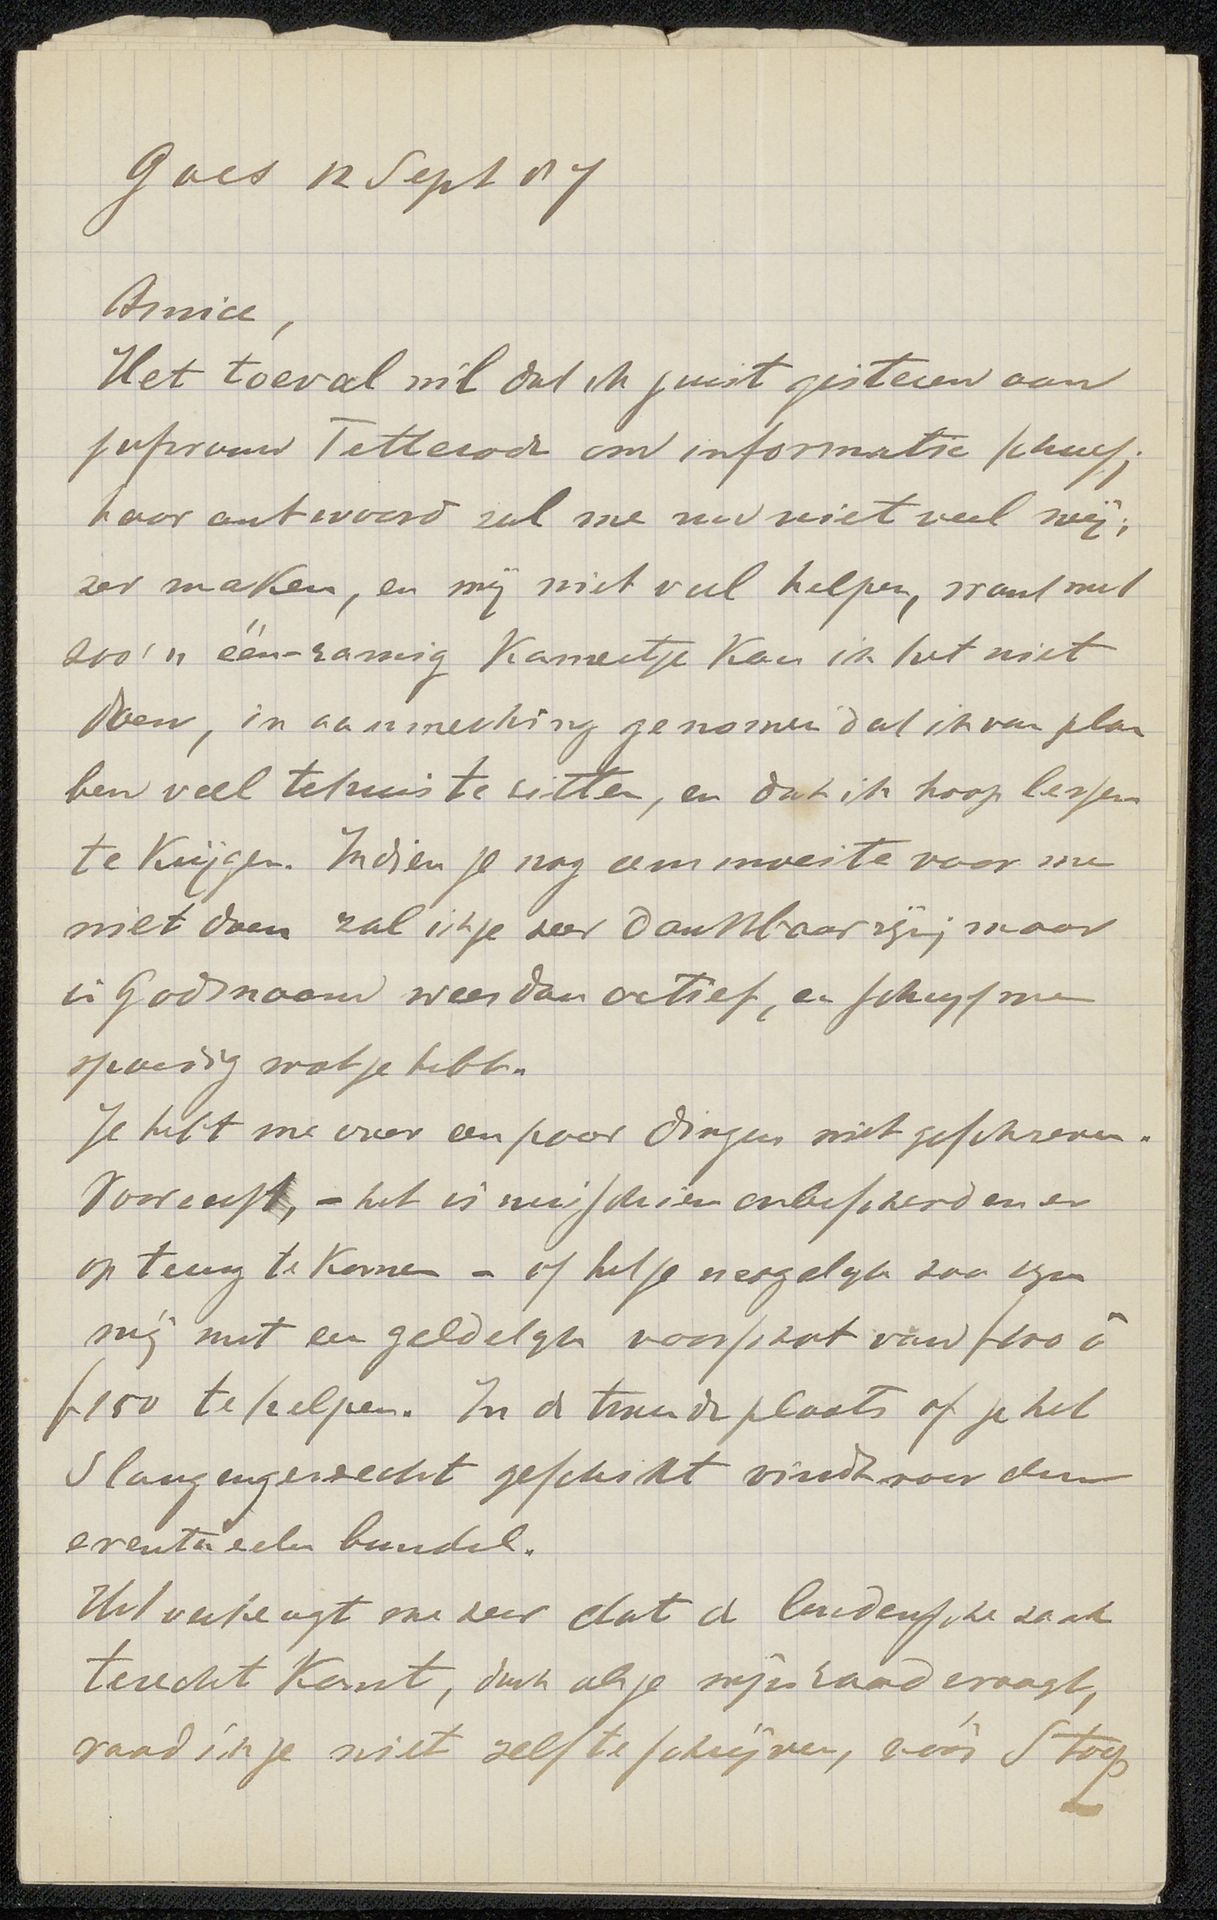 Goes 12 Sept 87
Amice,
Het toeval wil dat ik juist gisteren aan
jufvrouw Tetterode om informatie schreef;
haar antwoord zal me nu niet veel wij-
zer maken, en mij niet veel helpen, want met
zoo'n één-ramig kamertje kan ik het niet
doen, in aanmerking genomen dat ik van plan
ben veel tehuis te zitten, en dat ik hoop lessen
te krijgen. Indien je nog een moeite voor me
wilt doen zal ik je zeer dankbaar zijn; maar
in Godsnaam wees dan actief, en schrijf me
spoedig wat je hebt.
Je hebt me over een paar dingen niet geschreven.
Vooreerst, - het is misschien onbescheiden er
op terug te komen - of het je mogelijk zou zijn
mij met een geldelijk voorschot van f 100 à
f 150 te helpen. In de tweede plaats of je het
Slangengevecht geschikt vindt voor den
eventueelen bundel.
Het verheugt me zeer dat de Leidensche zaak
terecht komt, doch als je mijn raad vraagt,
raad ik je niet zelf te schrijven, vóór Stoop